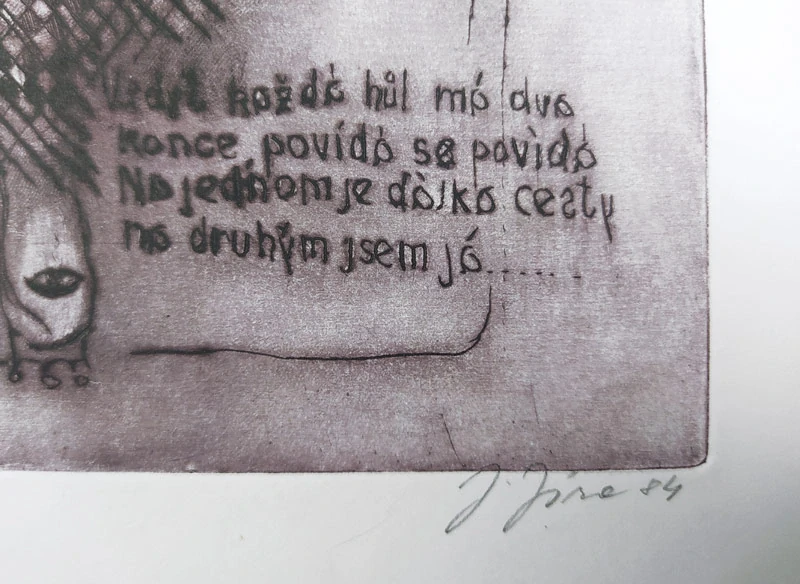 Vždyť každá hůl má dva
konce, povídá se povídá
Na jednom je dálka cesty
na druhým jsem já.......
J. Jíra 84